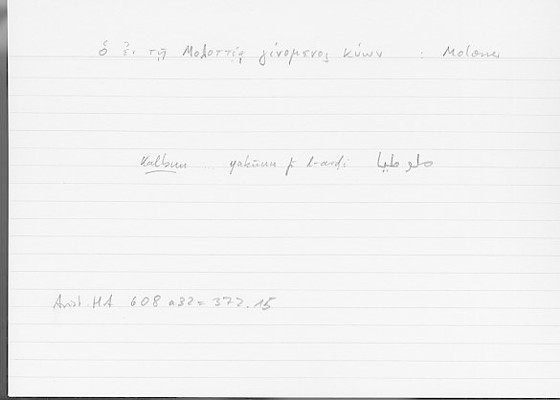 ὁ ἐν τῇ Μολοττίᾳ γινόμενος κύων :
kalbun yakūnu fī l-arḍi ملوطيا
Arist. HA 608 a32 = 372.15